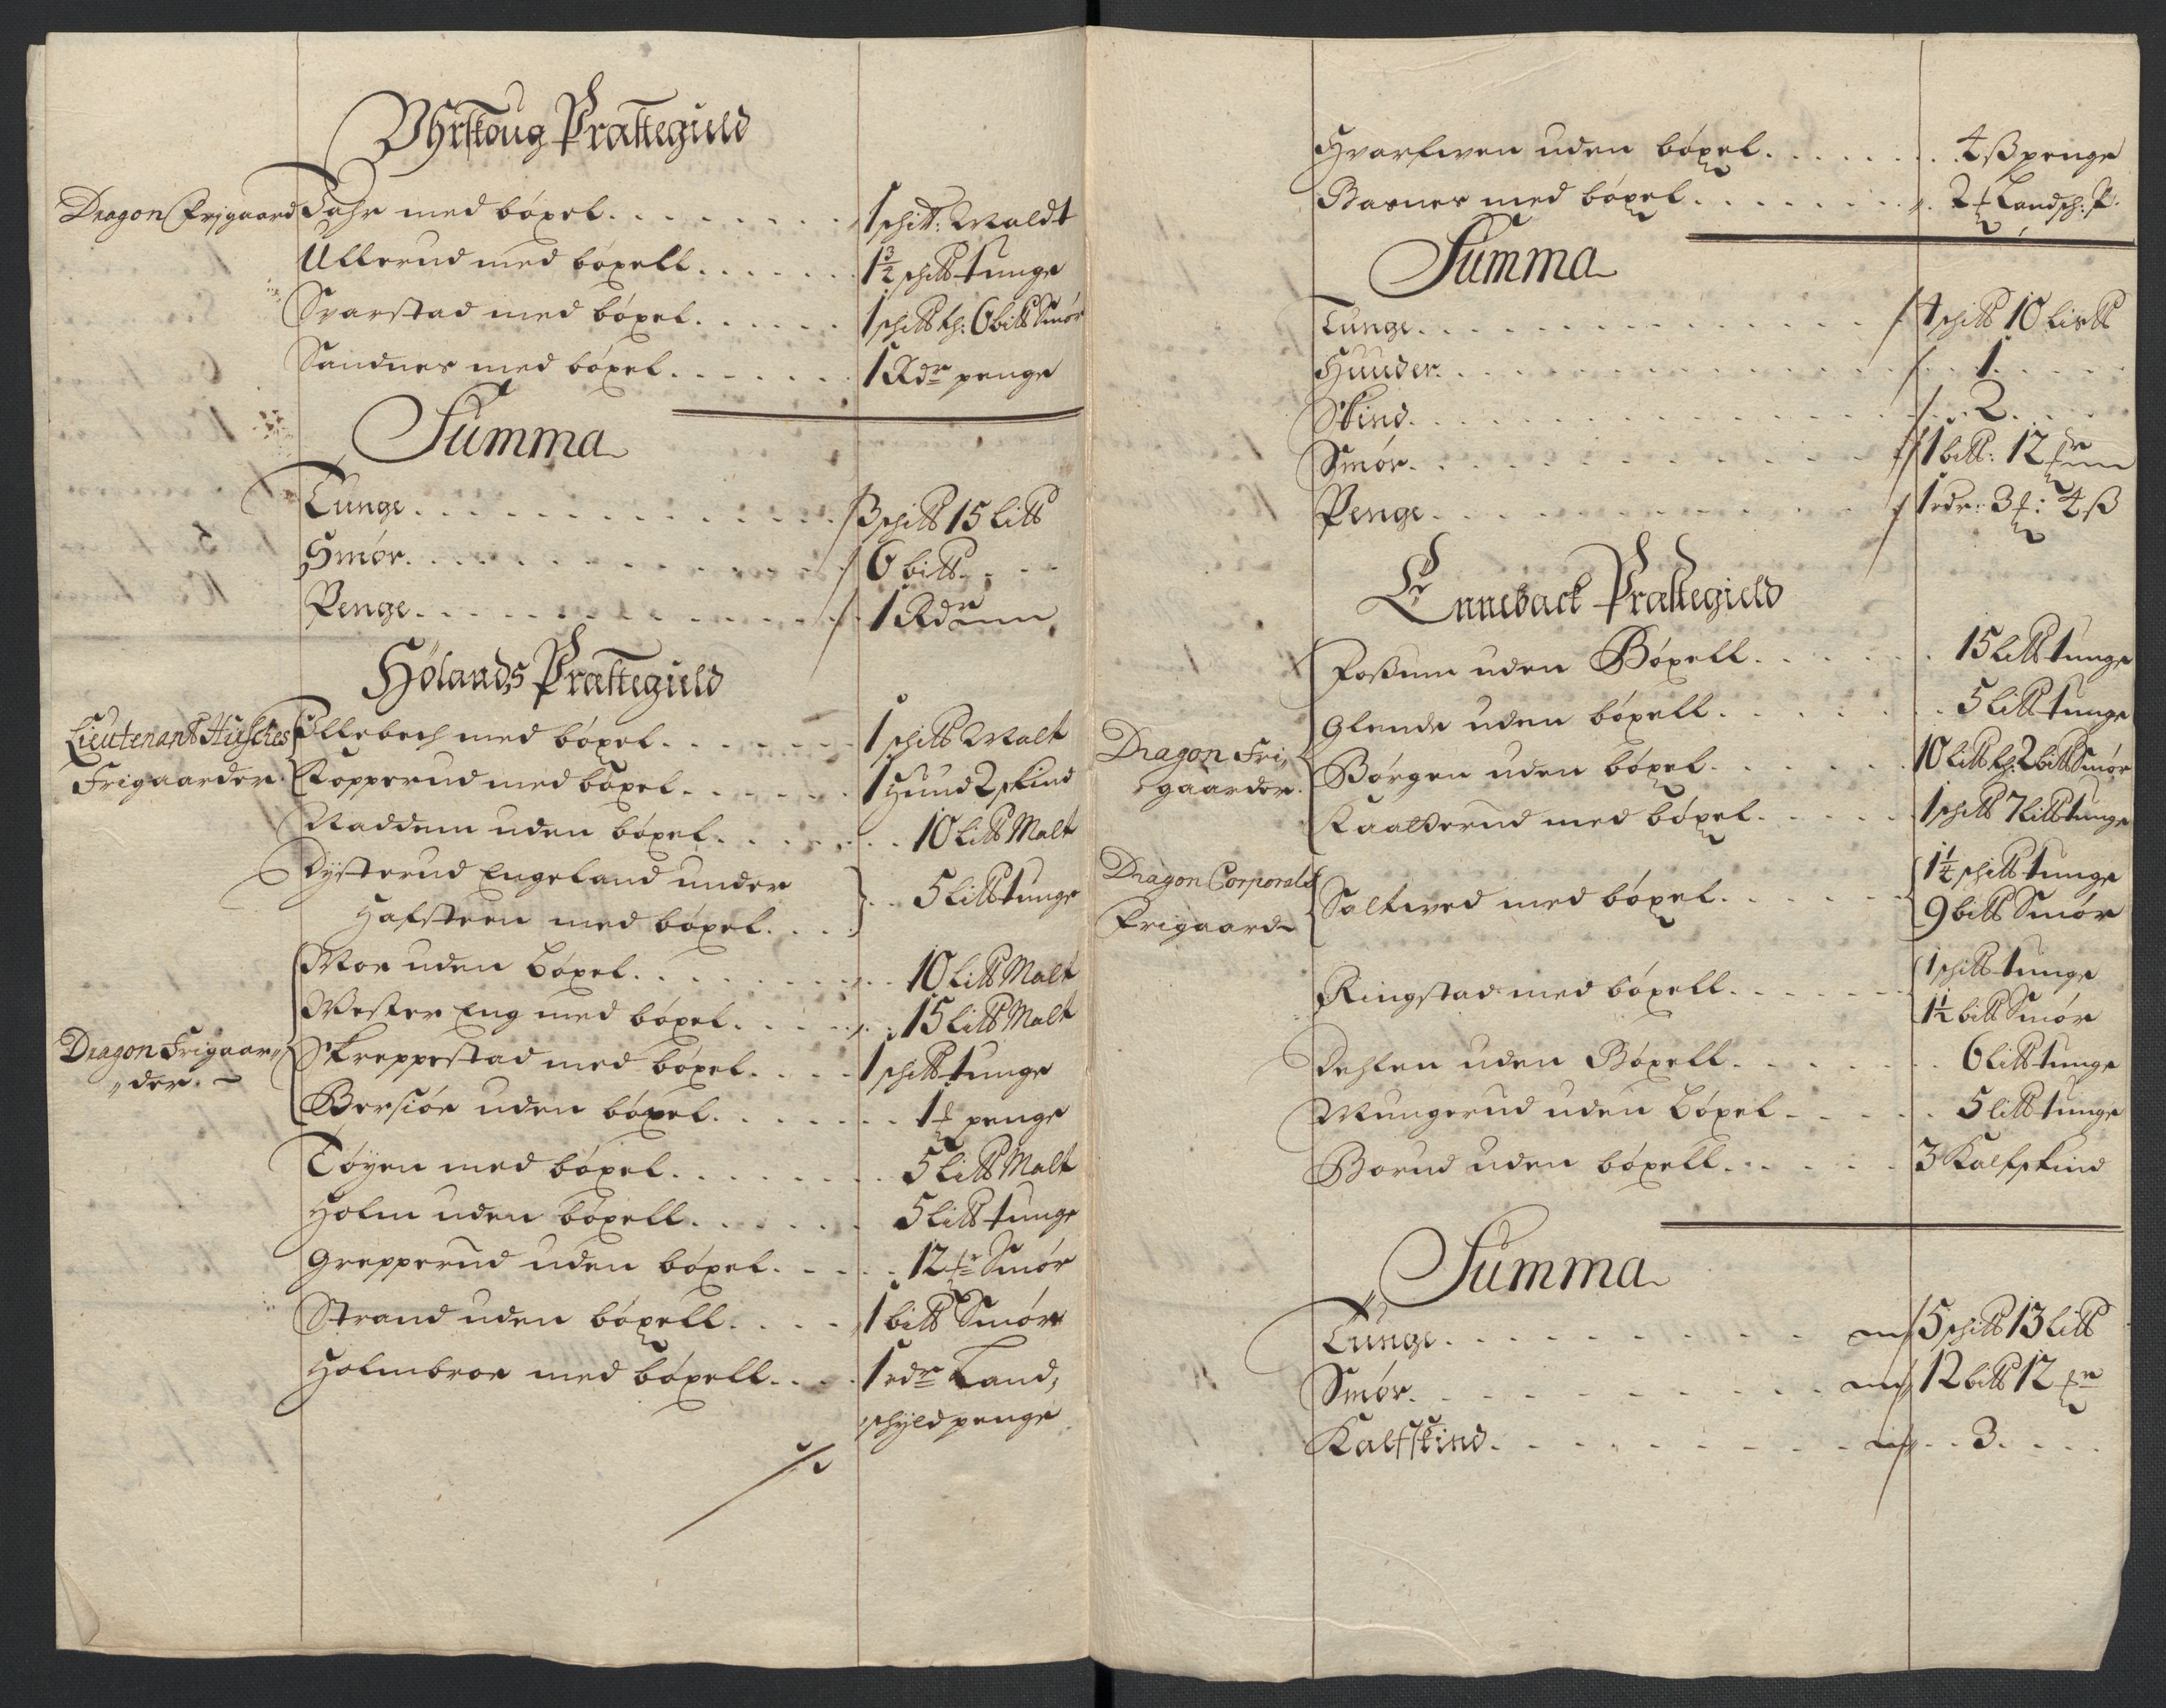 Uhrskoug Præstegield
Dragon Frjgaard Dahr med bóxel. . . . . . . . 1 schill: Maldt
Ullerud med bóxell. . . . . . . 1 3/2 schill tunge
Svarstad med bóxel. . . . . . 1 schill th: 6 bill Smör
Sandner med bóxel. . . . . . . 1 Rdr penge
Summa
Tunge. . . . . . . . . . . 3 schill 15 lill
Smör. . . . . . . . . . . 6 bill. . . .
Penge. . . . . . . . . . . 1 Rdr
Hölands Præstegield
Lieutenant Hirsches Ellebech med bóxel. . . . . . . 1 schill Malt
Frigaarder. Kopperud med bóxel. . . . . . 1 Huud 2 skind
Naddem uden bóxel. . . . . . . 10 lill Malt
Dysterud Engeland under
Hafsteen med bóxel. . . . . . 5 lill tunge
Moe uden bóxel. . . . . . . . . 10 lill Malt
Wester Eng med bóxel. . . . . . 15 lill Malt
Dragon Frigaar„ Skreppestad med bóxel. . . . . 1 schill tunge
„der. Bersiöe uden bóxel. . . . . . . 1 f penge
Töyen med bóxel. . . . . . . . 5 lill Malt
Holm uden bóxell. . . . . . . 5 lill tunge
Grepperud uden bóxel. . . . . 12 fr Smör
Strand uden bóxell. . . . . 1 bill Smör
Holmbroe med bóxell. . . . 1 rdr Land,
schyld penge
./.
Hvarfven uden bóxel. . . . . . . . 4 ß penge
Basnes med bóxel. . . . . . . . . 2 f Landsch: P.
Summa
Tunge. . . . . . . . . . . . 4 schill 10 lisll
Huuder. . . . . . . . . . . . 1. . . .
Skind. . . . . . . . . . . . 2. . . .
Smör. . . . . . . . . . . . 1 bill: 12 fr
Penge. . . . . . . . . . . . 1 rdr: 3 f: 4 ß
Enneback Præstegield
Foßum uden Bóxell. . . . . . . 15 lill tunge
Glende uden bóxell. . . . . . . 5 lill tunge
Dragon Fri„ Börgen uden bóxel. . . . . . 10 lill th: 2 bill Smör
gaarder. Kaalderud med bóxel. . . . . 1 schill 7 lill tunge
Dragon Corporals Saltved med bóxel. . . . . . 1 1/4 schill tunge
Frigaard 9 bill Smör
Ringstad med bóxell. . . . . . 1 schill tunge
1 1/2 bill Smör
Dehlen uden Bóxell. . . . . . . 6 lill tunge
Mungerud uden bóxel. . . . . 5 lill tunge
Borud uden bóxell. . . . . . 3 Kalfskind
Summa
Tunge. . . . . . . . . . 5 schill 13 lill
Smör. . . . . . . . . . 12 bill 12 fr
Kalfskind. . . . . . . . . . 3. . . .